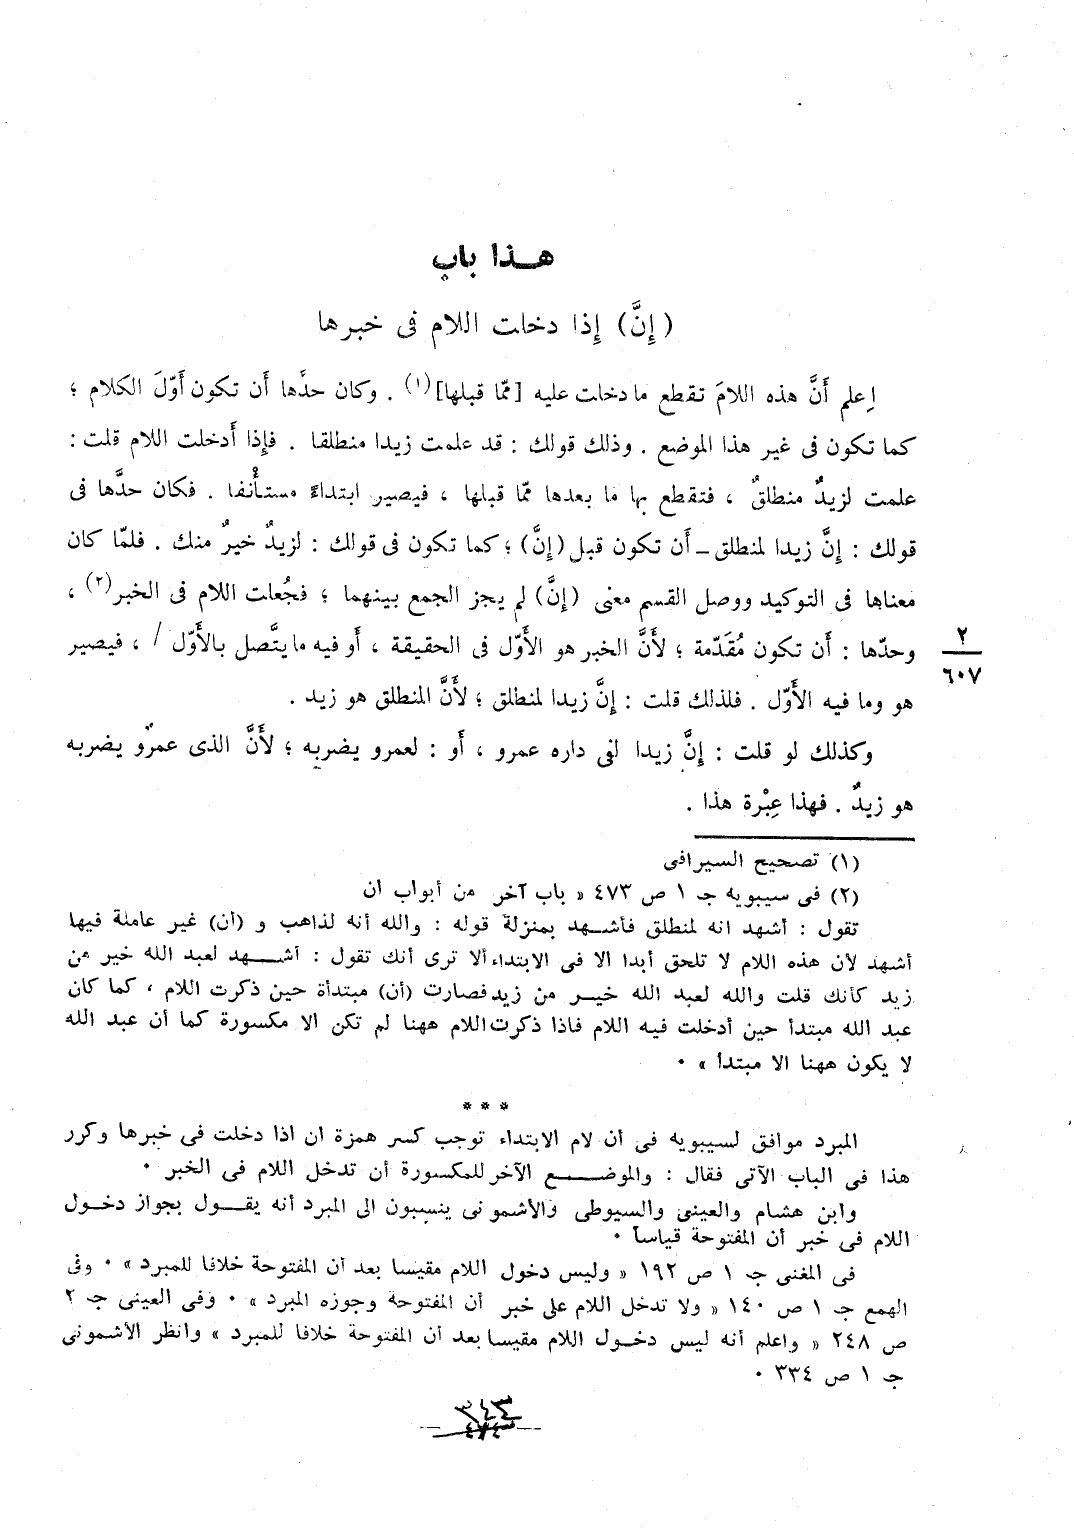 هـذا باب
(إِنَّ) إِذا دخلت اللام فى خبرها
اِعلم أَنَّ هذه اللامَ تقطع ما دخلت عليه [ممّا قبلها](١) . وكان حدَّها أَن تكون أَوّلَ الكلام ؛
كما تكون فى غير هذا الموضع . وذلك قولك : قد علمت زيدا منطلقا . فإِذا أَدخلت اللام قلت :
علمت لزيدٌ منطلقٌ ، فتقطع بها ما بعدها ممّا قبلها ، فيصير ابتداءً مستأْنفا . فكان حدَّها فى
قولك : إِنَّ زيدا لمنطلق – أَن تكون قبل (إِنَّ) ؛ كما تكون فى قولك : لزيدٌ خيرٌ منك . فلمّا كان
معناها فى التوكيد ووصل القسم معنى (إِنَّ) لم يجز الجمع بينهما ؛ فجُعلت اللام فى الخبر(٢) ،
وحدّها : أَن تكون مُقَدّمة ؛ لأَنَّ الخبر هو الأَوّل فى الحقيقة ، أَو فيه ما يتَّصل بالأَوّل / ، فيصير
٢
٦٠٧
هو وما فيه الأَوّل . فلذلك قلت : إِنَّ زيدا لمنطلق ؛ لأَنَّ المنطلق هو زيد .
وكذلك لو قلت : إِنَّ زيدا لفى داره عمرو ، أَو : لعمرو يضربه ؛ لأَنَّ الذى عمرٌو يضربه
هو زيدٌ . فهذا عِبْرة هذا .
(١) تصحيح السيرافى
(٢) فى سيبويه جـ ١ ص ٤٧٣ « باب آخر من أبواب ان
تقول : أشهد انه لمنطلق فأشـهد بمنزلة قوله : والله أنه لذاهب و (أن) غير عاملة فيها
أشهد لأن هذه اللام لا تلحق أبدا الا فى الابتداء ألا ترى أنك تقول : أشـــهد لعبد الله خير من
زيد كأنك قلت والله لعبد الله خيـر من زيد فصارت (أن) مبتدأة حين ذكرت اللام ، كما كان
عبد الله مبتدأ حين أدخلت فيه اللام فاذا ذكرت اللام ههنا لم تكن الا مكسورة كما أن عبد الله
لا يكون ههنا الا مبتدأ » .
* * *
المبرد موافق لسيبويه فى أن لام الابتداء توجب كسر همزة ان اذا دخلت فى خبرها وكرر
هذا فى الباب الآتى فقال : والموضــــع الآخر للمكسورة أن تدخل اللام فى الخبر .
وابن هشام والعينى والسيوطى والأشمونى ينسبون الى المبرد أنه يقـــول بجواز دخـول
اللام فى خبر أن المفتوحة قياسا .
فى المغنى جـ ١ ص ١٩٢ « وليس دخول اللام مقيسا بعد أن المفتوحة خلافا للمبرد » . وفى
الهمع جـ ١ ص ١٤٠ « ولا تدخل اللام على خبر أن المفتوحة وجوزه المبرد » . وفى العينى جـ ٢
ص ٢٤٨ « واعلم أنه ليس دخـول اللام مقيسا بعد أن المفتوحة خلافا للمبرد » وانظر الأشمونى
جـ ١ ص ٣٣٤ .
٣٤٣